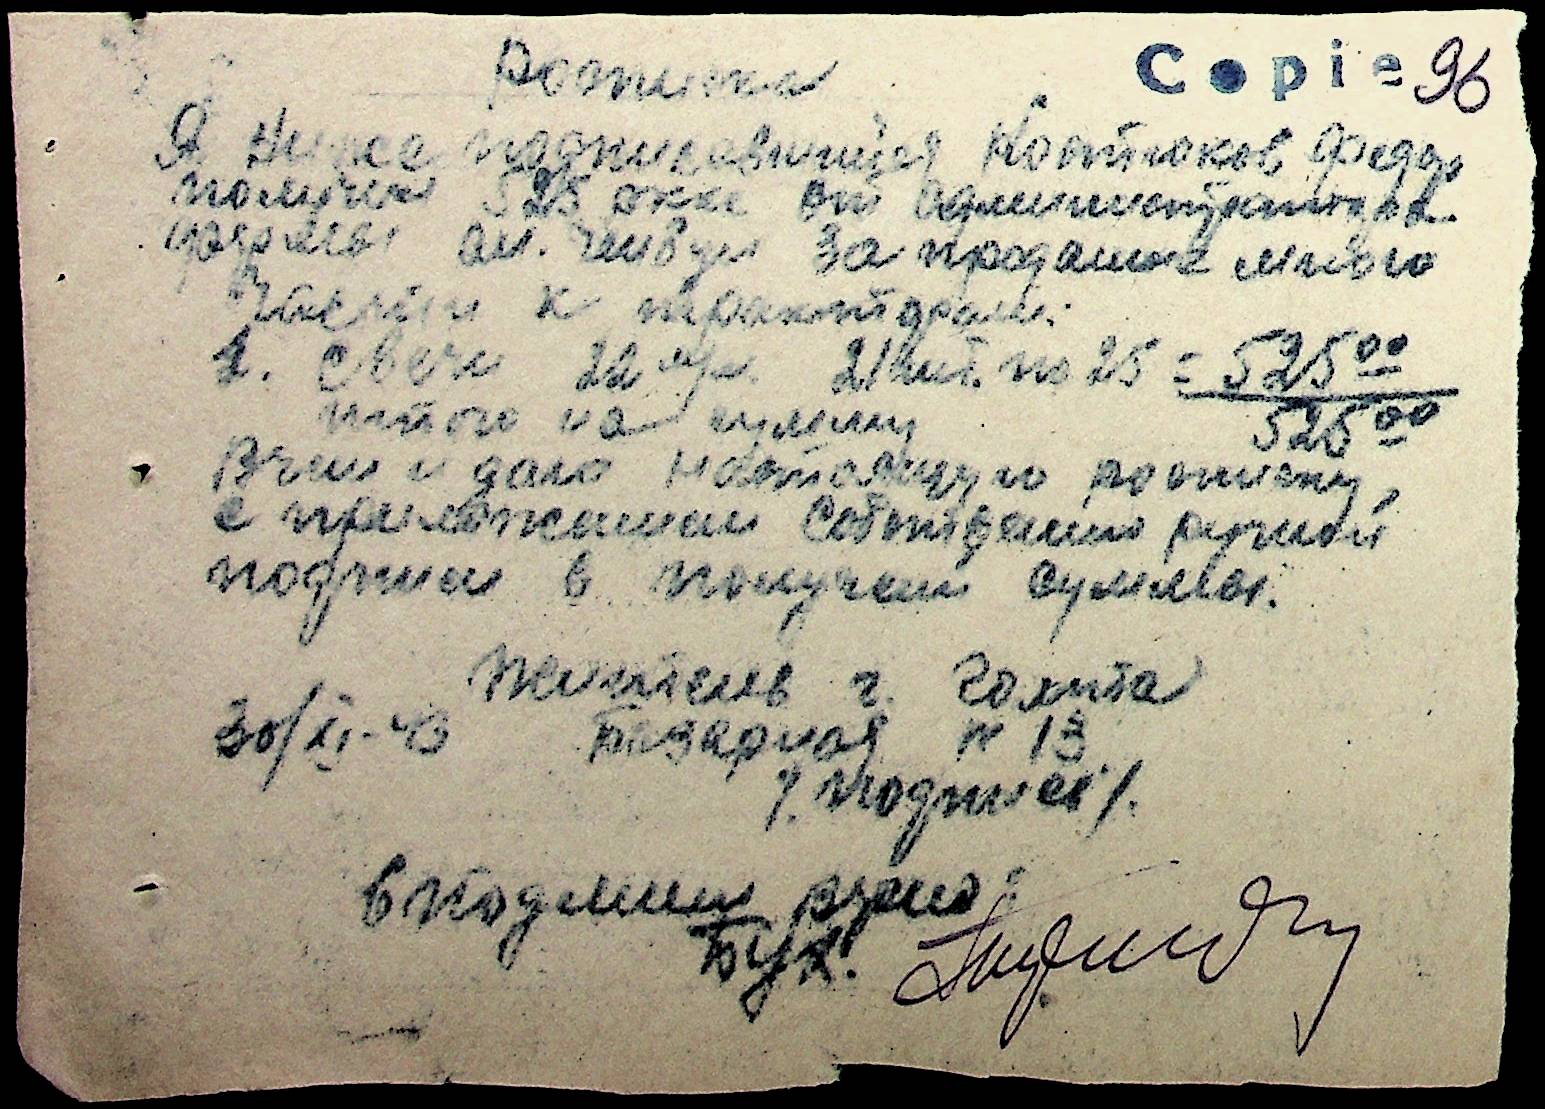 Copie 96
Росписка
Я ниже подписавшийся Костюков Федор
получил 525 окке от администратора
фермы ам. за проданые мною
части к тракторам:
1. свечи 22 м/м. 21 шт. по 25 = 525⁰⁰
итого на сумму 525⁰⁰
В чем и даю настоящую росписку,
с приложением собственно ручной
подписи в получении суммы.
Житель г. Голта
30/XI-43 Базарная № 13
/. подпись /.
С подлинным верно:
Бух.